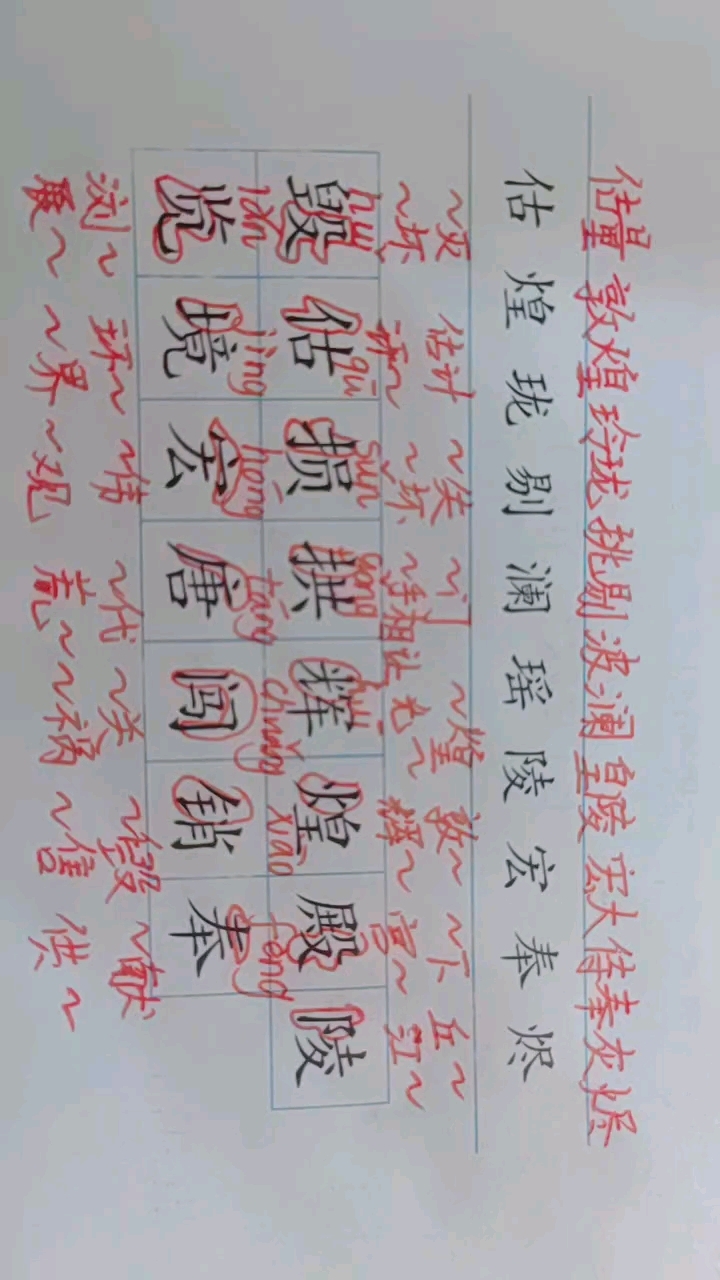 估量 敦煌 玲珑 挑剔 波澜 皇陵 宏大 侍奉 灰烬
估 煌 珑 剔 澜 瑶 陵 宏 奉 烬
~灭 估计 ~失 ~门 ~煌 敦~ ~下 丘~
~坏 评~ ~坏 ~手相让 光~ 辉~ 宫~ 江~
huǐ gū sǔn gǒng huī
毁 估 损 拱 辉 煌 殿 陵
lǎn jìng hóng táng chuǎng xiāo fèng
览 境 宏 唐 闯 销 奉
浏~ 环~ ~伟 ~代 ~关 ~毁 ~献
展~ ~界 ~观 荒~ ~祸 ~售 供~